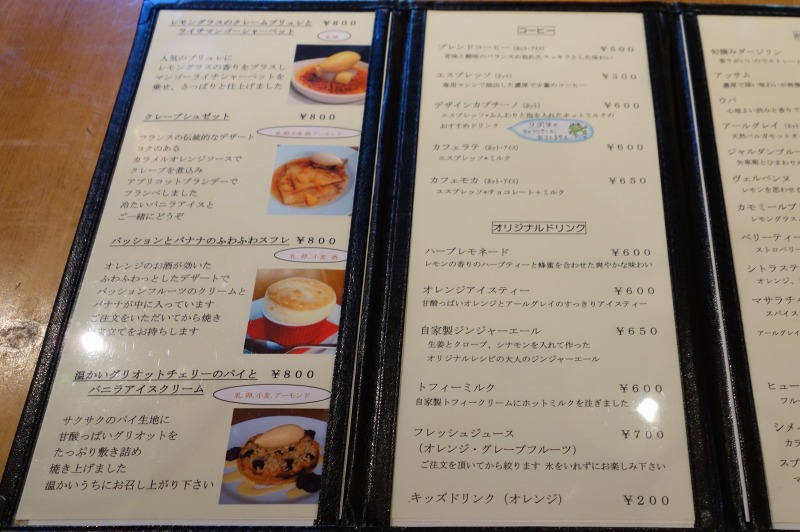 レモングラスのクレームブリュレと ￥８００
ライチマンゴーシャーベット
人気のブリュレに
レモングラスの香りをプラスし
マンゴーライチシャーベットを
乗せ、さっぱりと仕上げました
クレープシュゼット ￥８００
フランスの伝統的なデザート
コクのある
カラメルオレンジソースで
クレープを煮込み
アプリコットブランデーで
フランベしました
冷たいバニラアイスと
ご一緒にどうぞ
パッションとバナナのふわふわスフレ ￥８００
乳,卵,小麦,酒
オレンジのお酒が効いた
ふわふわっとしたデザートで
パッションフルーツのクリームと
バナナが中に入っています
ご注文をいただいてから焼き
立てをお持ちします
温かいグリオットチェリーのパイと ￥８００
バニラアイスクリーム
乳,卵,小麦,アーモンド
サクサクのパイ生地に
甘酸っぱいグリオットを
たっぷり敷き詰め
焼き上げました
温かいうちにお召し上がり下さい
コーヒー
ブレンドコーヒー（ホット・アイス） ￥５００
苦味と酸味のバランスの取れたスッキリとした味わい
エスプレッソ（ホット） ￥３００
専用マシンで抽出した濃厚で少量のコーヒー
デザインカプチーノ（ホット） ￥６００
エスプレッソ+ふんわりと泡を入れたホットミルクの
おすすめドリンク
カフェラテ（ホット・アイス） ￥６００
エスプレッソ+ミルク
カフェモカ（ホット・アイス） ￥６５０
エスプレッソ+チョコレート+ミルク
オリジナルドリンク
ハーブレモネード ￥６００
レモンの香りのハーブティーと蜂蜜を合わせた爽やかな味わい
オレンジアイスティー ￥６００
甘酸っぱいオレンジとアールグレイのすっきりアイスティー
自家製ジンジャーエール ￥６５０
生姜とクローブ、シナモンを入れて作った
オリジナルレシピの大人のジンジャーエール
トフィーミルク ￥６００
自家製トフィークリームにホットミルクを注ぎました
フレッシュジュース ￥７００
（オレンジ・グレープフルーツ）
ご注文を頂いてから絞ります 氷をいれずにお楽しみ下さい
キッズドリンク（オレンジ） ￥２００
旬摘みダージリン
香りがいいのでストレー
アッサム
濃厚で深い味わいが特徴
ウバ
心地よい渋みと香りで
アールグレイ（
天然ベルガモット
ジャルダンブルー
矢車菊とひまわり
ヴェルベンヌ
レモンを思わせ
カモミールブ
レモングラス
ベリーティー
ストロベリー
シトラステ
オレンジ、
マサラチャ
スパイス
アールグレイ
ヒュー
フルー
シメイ
カラ
スプ
マ